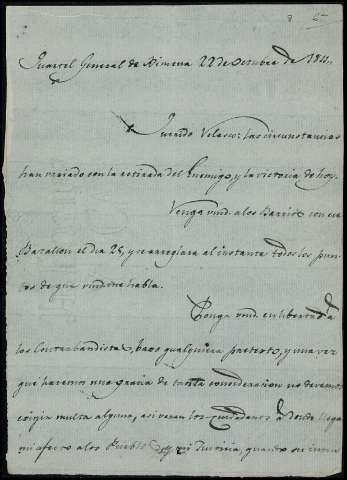 8 25
Quartel General de Ximena 22 de Octubre de 1811,,
Querido Velasco: las circunstancias
han variado con la retirada del Enemigo, y la victoria de hoy.
Venga vmd. a los Barrios con su
Batallon el dia 25, y se arreglara al instante todos los pun-
tos de que vmd. me habla.
Ponga vmd. en libertad a
los Contrabandistas, baxo qualquiera pretexto, y una vez
que haremos una gracia de tanta consideracion no devemos
exigir multa alguna, asi veran los Ciudadanos a donde llega
mi afecto a los Pueblos, y mi Justicia, quando se